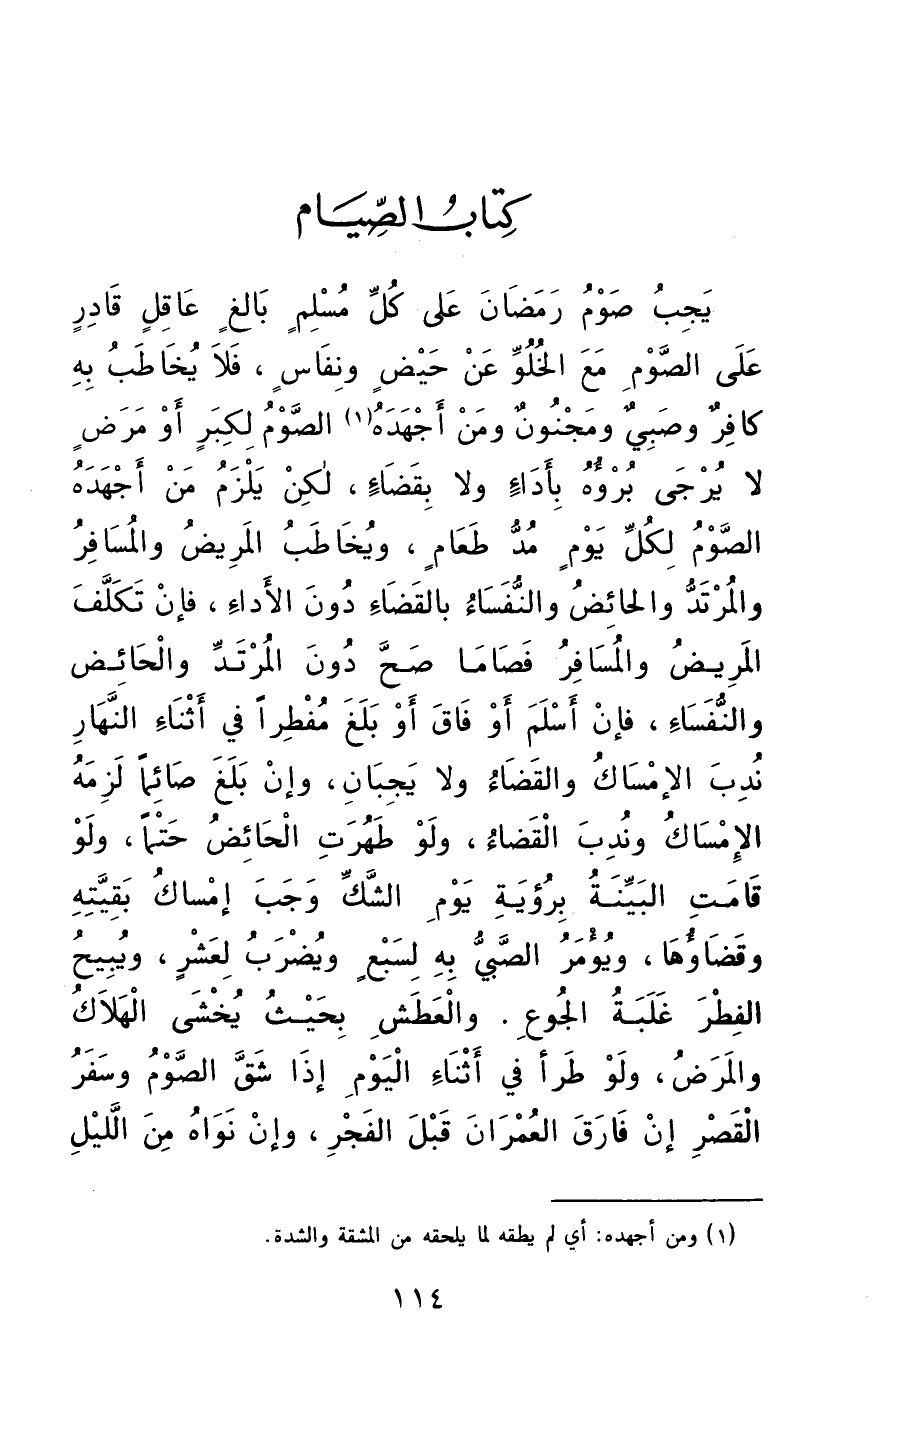 كِتَابُ الصِّيَام
يَجِبُ صَوْمُ رَمَضَانَ عَلى كُلِّ مُسْلِمٍ بَالغٍ عَاقِلٍ قَادِرٍ
عَلَى الصَّوْمِ مَعَ الخُلُوِّ عَنْ حَيْضٍ ونِفَاسٍ ، فَلاَ يُخَاطَبُ بِهِ
كافِرٌ وصَبِيٌ ومَجْنُونٌ ومَنْ أَجْهَدَهُ(١) الصَّوْمُ لِكبَرٍ أَوْ مَرَضٍ
لا يُرْجَى بُرْؤُهُ بِأَدَاءٍ ولا بِقَضَاءٍ ، لٰكِنْ يَلْزَمُ مَنْ أَجْهَدَهُ
الصَّوْمُ لِكُلِّ يَوْمٍ مُدُّ طَعَامٍ ، ويُخَاطَبُ المَرِيضُ والمُسَافِرُ
والمُرْتَدُّ والحائِضُ والنُّفَسَاءُ بالقَضَاءِ دُونَ الأَداءِ ، فإنْ تَكَلَّفَ
المَرِيضُ والمُسَافِرُ فَصَامَا صَحَّ دُونَ المُرْتَدِّ والْحَائِضِ
والنُّفَسَاءِ ، فإنْ أَسْلَمَ أَوْ فَاقَ أَوْ بَلَغَ مُفْطِراً في أَثْنَاءِ النَّهَارِ
نُدِبَ الإمْسَاكُ والقَضَاءُ ولا يَجِبَانِ ، وإنْ بَلَغَ صَائِماً لَزِمَهُ
الإِمْسَاكُ ونُدِبَ الْقَضاءُ ، ولَوْ طَهُرَتِ الْحَائِضُ حَتْماً ، ولَوْ
قَامَتِ البَيِّنَةُ بِرُؤيَةِ يَوْمِ الشَّكِّ وَجَبَ إمْساكُ بَقِيَّتِهِ
وقَضَاؤُهَا ، ويُؤْمَرُ الصَّبيُّ بِهِ لِسَبْعٍ ويُضْرَبُ لِعَشْرٍ ، ويُبِيحُ
الفِطْرَ غَلَبَةُ الجُوعِ . والْعَطَشِ بِحَيْثُ يُخْشَى الْهَلاَكُ
والمَرَضُ ، ولَوْ طَرأ في أَثْنَاءِ الْيَوْمِ إذَا شَقَّ الصَّوْمُ وسَفَرُ
الْقَصْرِ إنْ فَارَقَ العُمْرَانَ قَبْلَ الفَجْرِ ، وإنْ نَوَاهُ مِنَ اللَّيْلِ
(١) ومن أجهده: أي لم يطقه لما يلحقه من المشقة والشدة.
١١٤